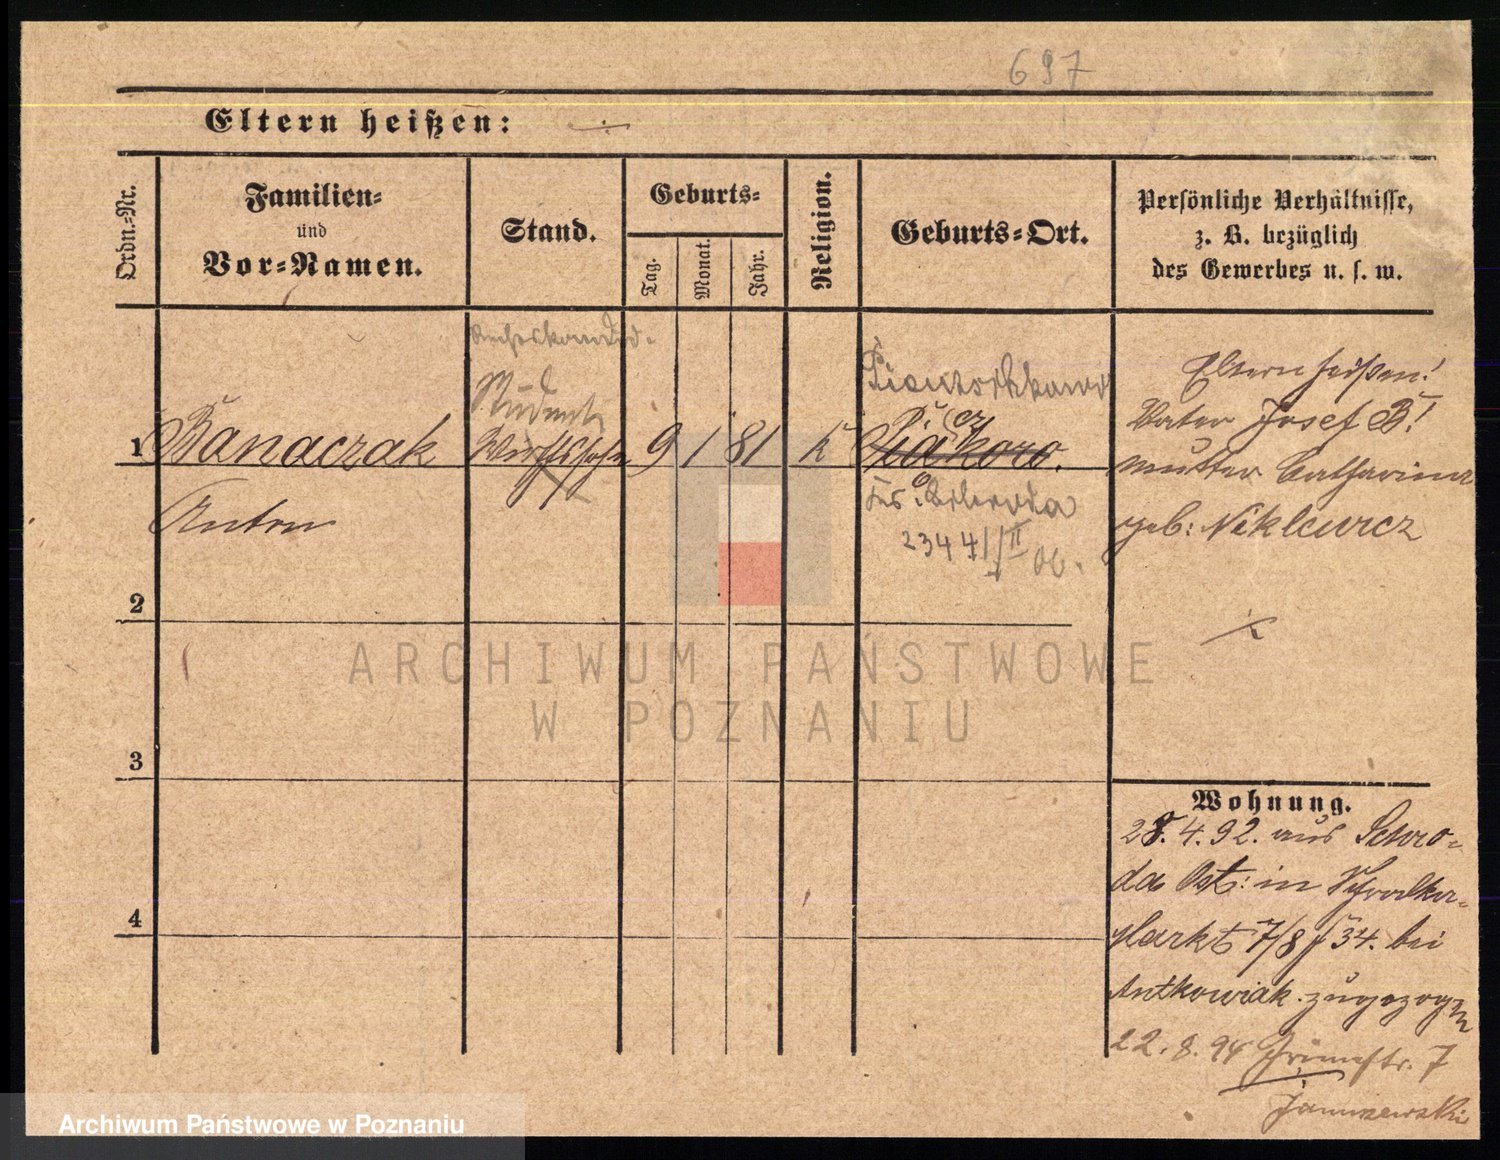 697
Eltern heißen:
Ordn.-Nr.
Familien-
und
Vor-Namen.
Stand.
Geburts-
Tag.
Monat.
Jahr.
Religion.
Geburts-Ort.
Persönliche Verhältnisse,
z. B. bezüglich
des Gewerbes u. s. w.
Student
1 Banaczak Wirthssohn 9 1 81 k
Anton
Eltern heißen!
Vater Josef B!
Mutter Catharina
geb: Niklewicz
Schroda
2344
2
3
4
ARCHIWUM PAŃSTWOWE
W POZNANIU
Wohnung.
28.4.92. aus Schro-
da Ost: in
Markt 7/8 34. bei
Antkowiak zugezogen
22.8.94 7
Januszewski
Archiwum Państwowe w Poznaniu